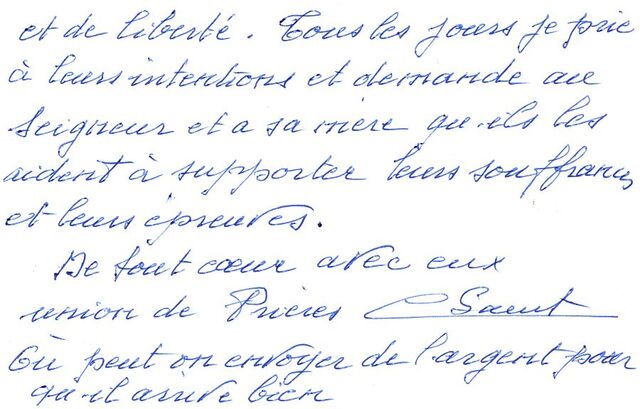 et de liberté. Tous les jours je prie
à leurs intentions et demande au
Seigneur et a sa mère qu'ils les
aident à supporter leurs souffrances
et leurs épreuves.
De tout cœur avec eux
union de Prières
Où peut on envoyer de l'argent pour
qu'il arrive bien